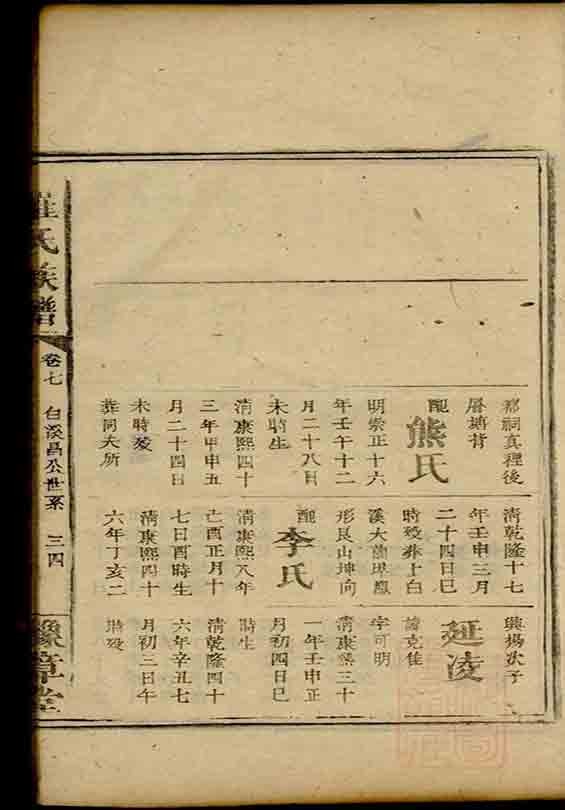 郡祠真裡後
層塘背
配
熊氏
明崇正十六
年壬午十二
月二十八日
未時生
清康熙四十
三年甲申五
月二十四日
未時歿
葬同夫所
清乾隆十七
年壬申三月
二十四日巳
時歿葬上白
溪大
形艮山坤向
配
李氏
清康熙八年
己酉正月十
七日酉時生
清康熙四十
六年丁亥二
興揚次子
延凌
諱克佳
字可明
清康熙三十
一年壬申正
月初四日巳
時生
清乾隆四十
六年辛丑七
月初三日午
時歿
羅氏族譜
卷七
白溪昌公世系
三四
豫章堂